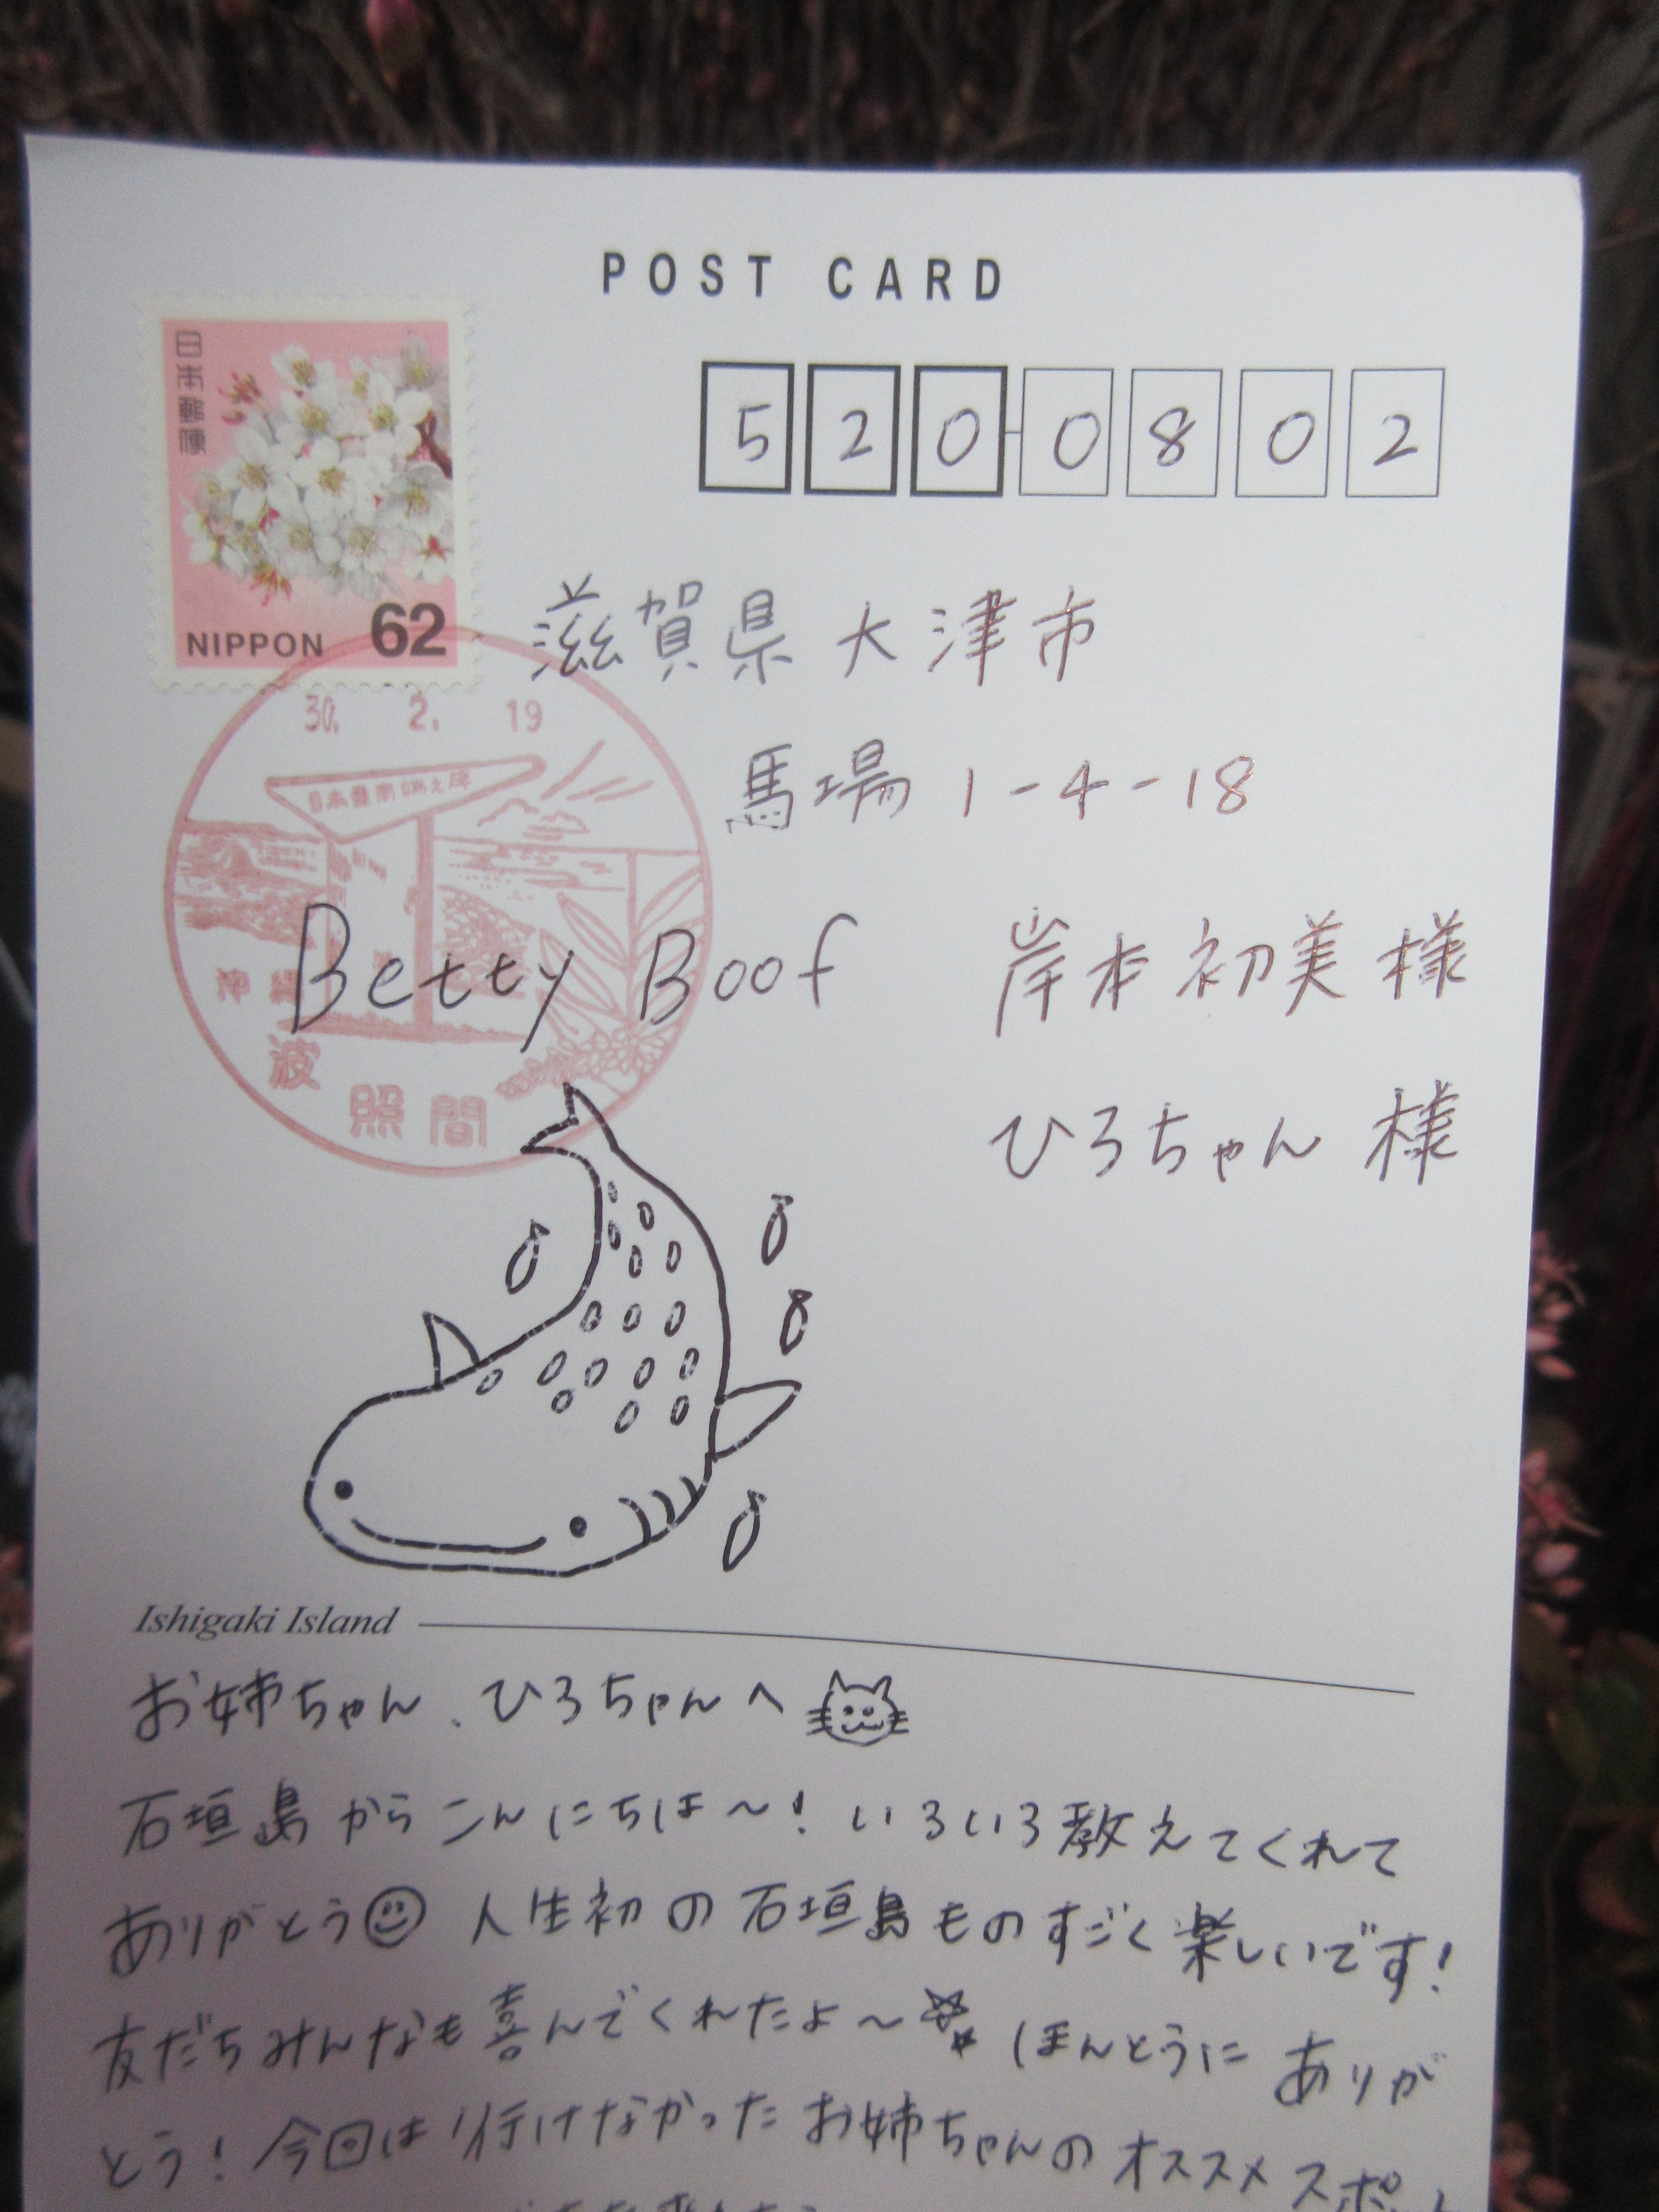 POST CARD
日本郵便
NIPPON 62
520-0802
滋賀県大津市
馬場 1-4-18
30. 2. 19
日本最南端之碑
沖縄
波照間
Betty Boof 岸本初美様
ひろちゃん 様
Ishigaki Island
お姉ちゃん、ひろちゃんへ
石垣島からこんにちは〜！いろいろ教えてくれて
ありがとう 人生初の石垣島ものすごく楽しいです！
友だちみんなも喜んでくれたよ〜 ほんとうにありが
とう！今回は行けなかったお姉ちゃんのオススメスポット